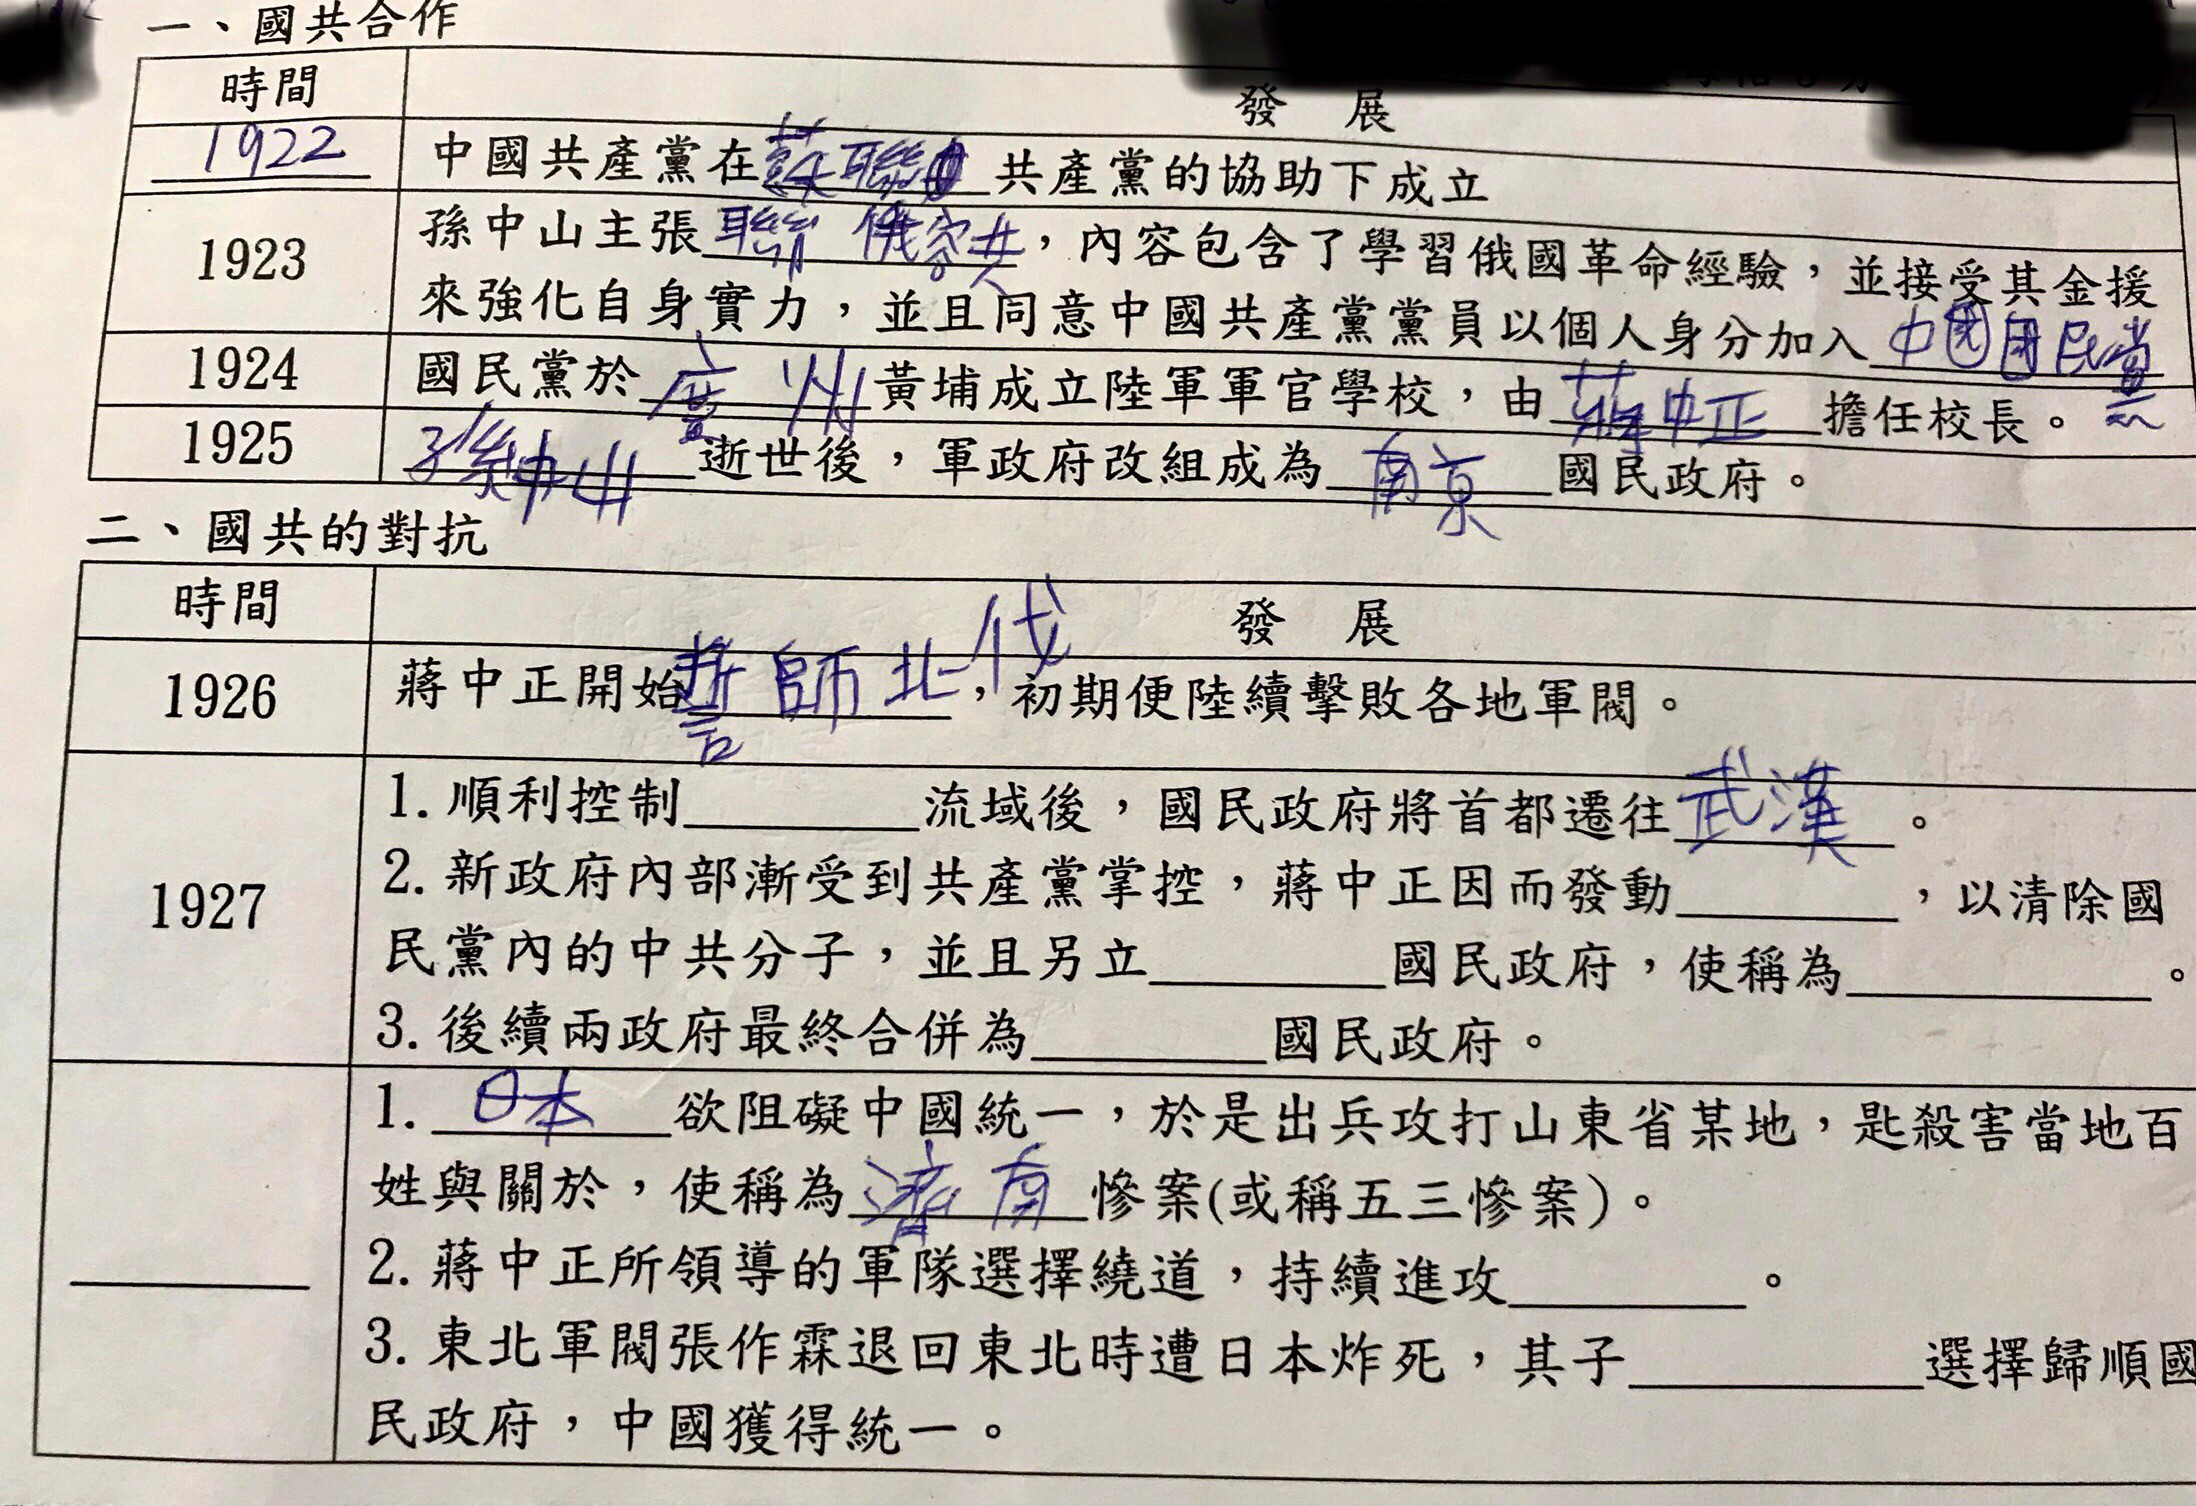 一、國共合作
時間 發 展
1922 中國共產黨在蘇聯共產黨的協助下成立
1923 孫中山主張聯俄容共,內容包含了學習俄國革命經驗,並接受其金援
來強化自身實力,並且同意中國共產黨黨員以個人身分加入中國國民黨
1924 國民黨於廣州黃埔成立陸軍軍官學校,由蔣中正擔任校長。
1925 孫中山逝世後,軍政府改組成為南京國民政府。
二、國共的對抗
時間 發 展
1926 蔣中正開始誓師北伐,初期便陸續擊敗各地軍閥。
1927
1. 順利控制________流域後,國民政府將首都遷往武漢。
2. 新政府內部漸受到共產黨掌控,蔣中正因而發動________,以清除國
民黨內的中共分子,並且另立________國民政府,使稱為________。
3. 後續兩政府最終合併為________國民政府。
1. 日本欲阻礙中國統一,於是出兵攻打山東省某地,匙殺害當地百
姓與關於,使稱為濟南慘案(或稱五三慘案)。
2. 蔣中正所領導的軍隊選擇繞道,持續進攻________。
3. 東北軍閥張作霖退回東北時遭日本炸死,其子________選擇歸順國
民政府,中國獲得統一。